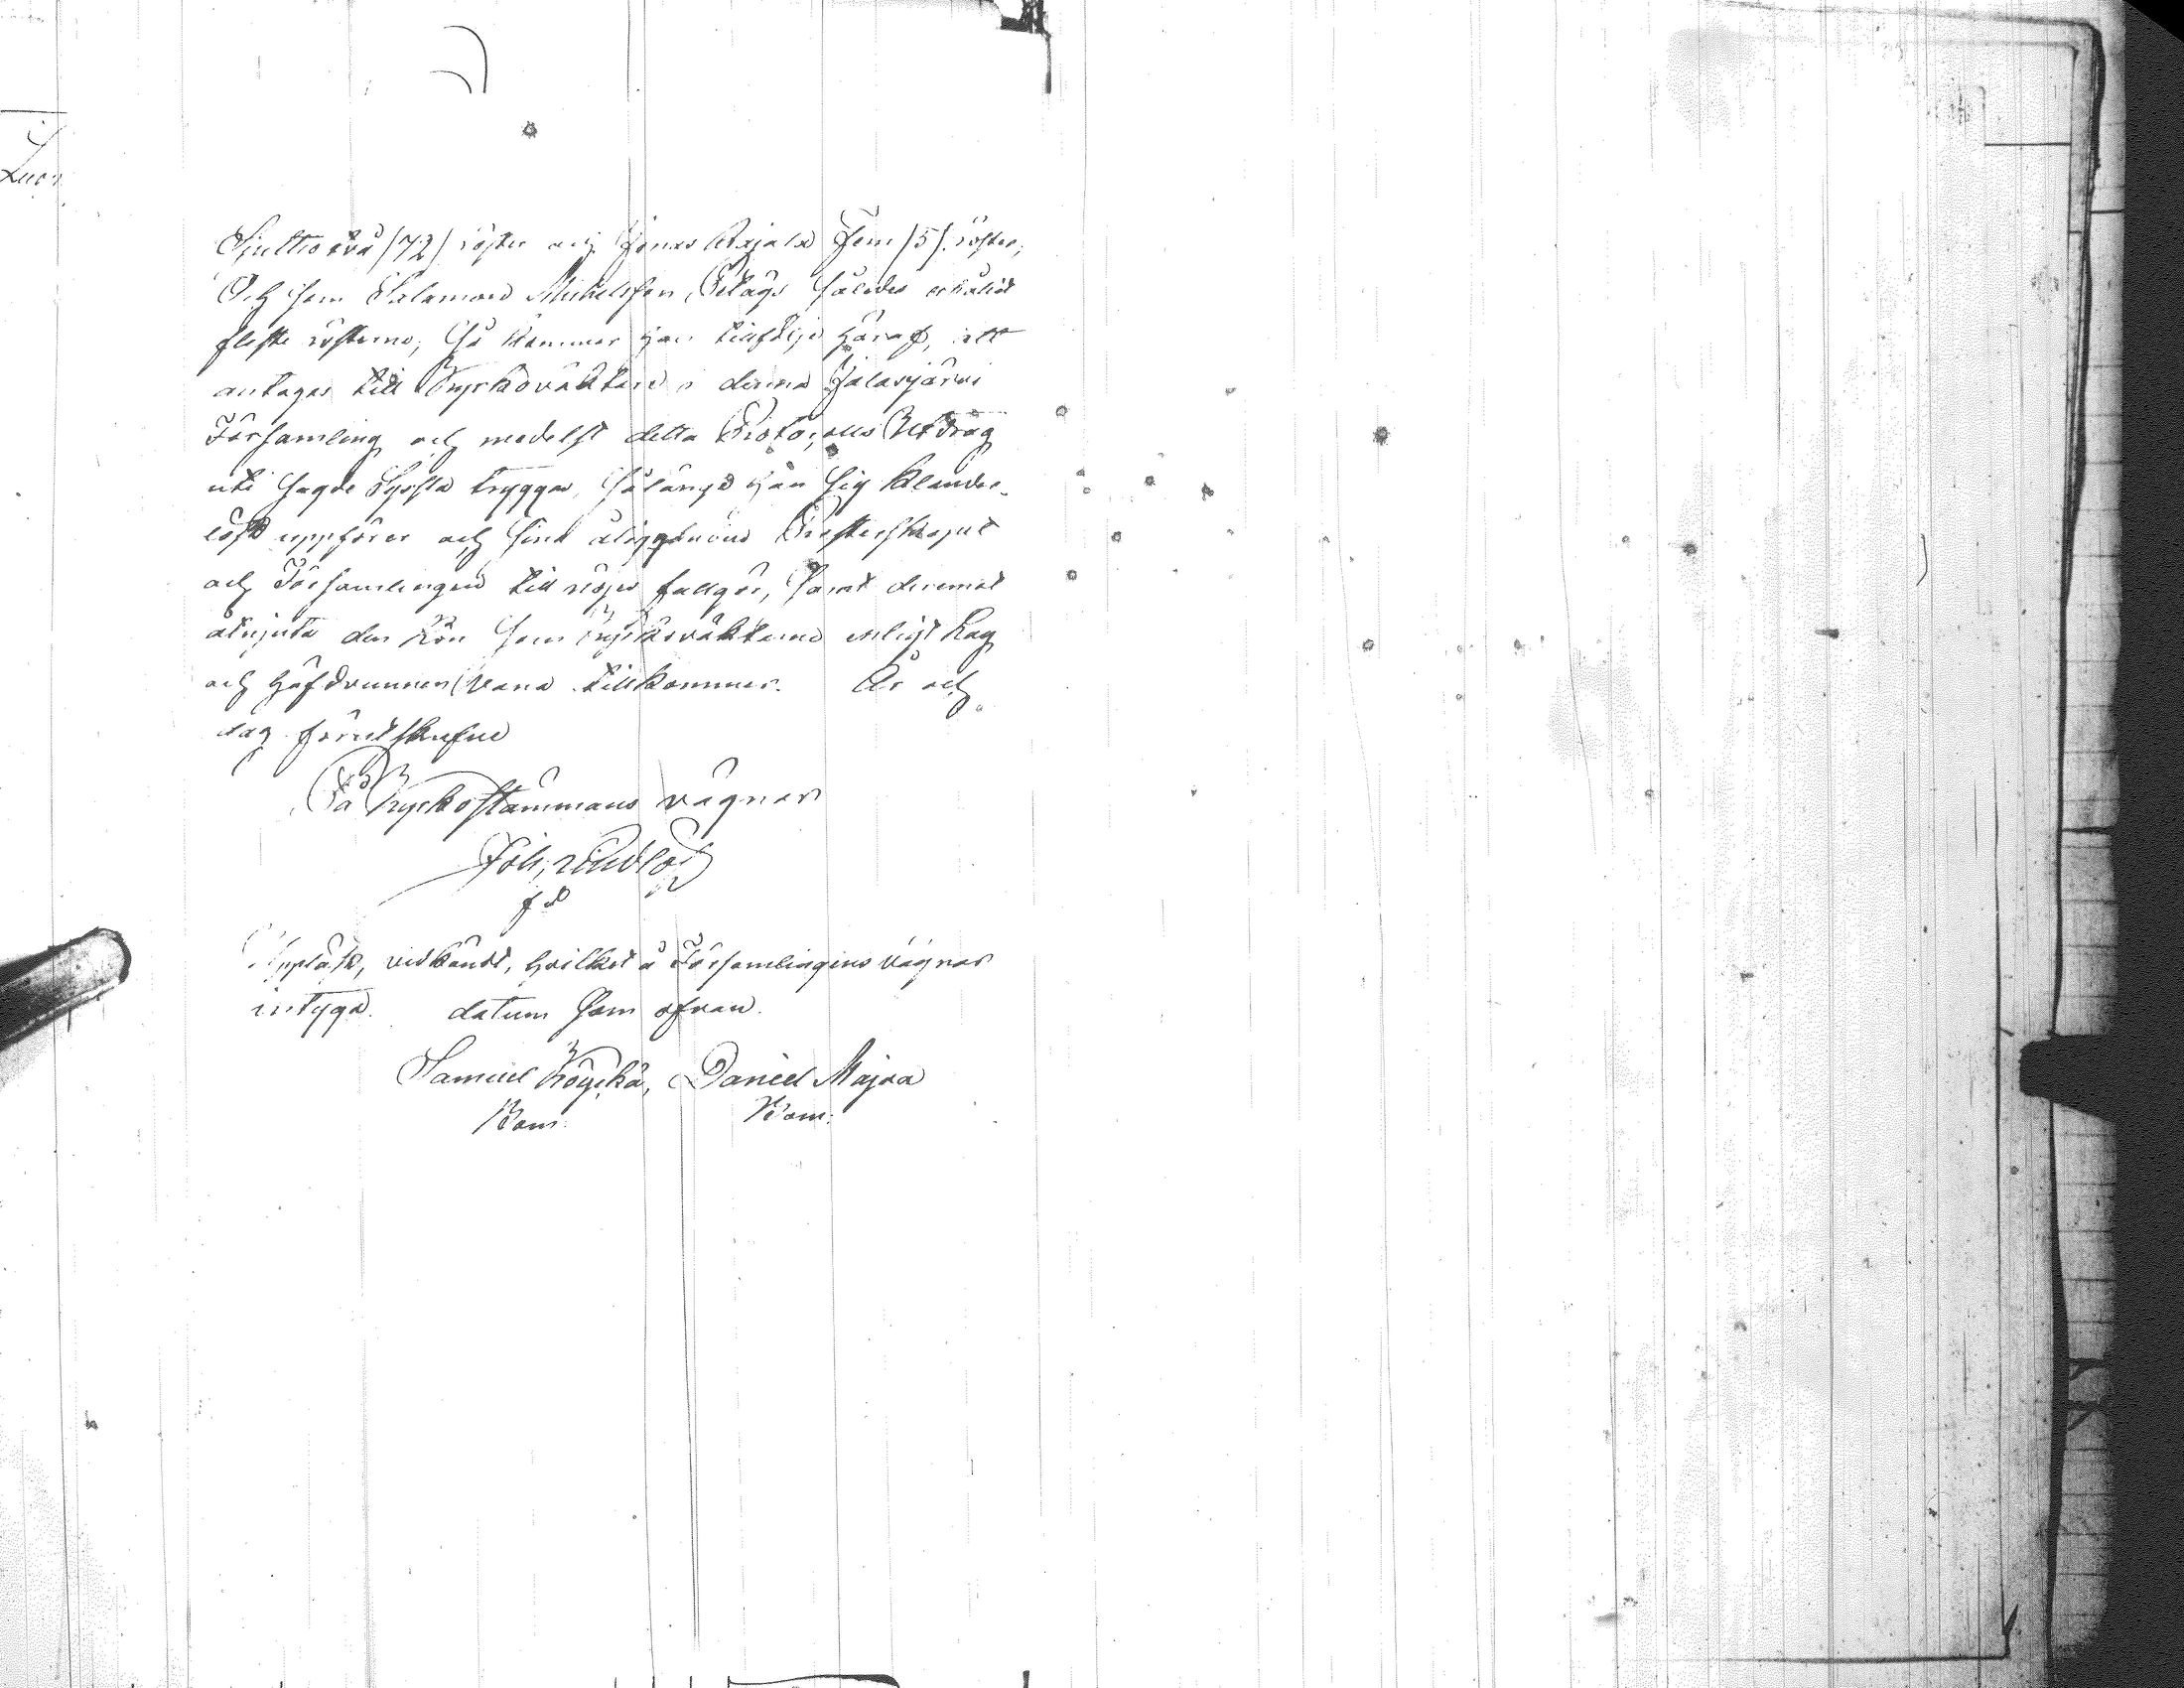 Sjuttiotvå /72/ röster och Jonas Rajala Fem /5/. röster;
Och som Salamon Michelsson Pelags således erhållit
fleste rösterne; Så kommer han tillfölje häraf, att
antagas till Kyrkoväktare i denna Jalasjärvi
Församling och medelst detta Protocolls Utdrag
uti sagde Syssla trygges, Sålänge han sig klander-
löst uppförer och sine åligganden Presterskapet
och Församlingen till nöjes fullgör, Samt deremot
åtnjuta den Lön som Kyrkoväktarne enligt Lag
och häfdvunnen Vana tillkommer. År och
dag förutskrefne
På Kyrkostämmans vägnar
Joh:
Uppläst, vidkändt, hvilket å Församlingens vägnar
intyga. datum som ofvan.
Samuel Köyckä, Daniel Majaa